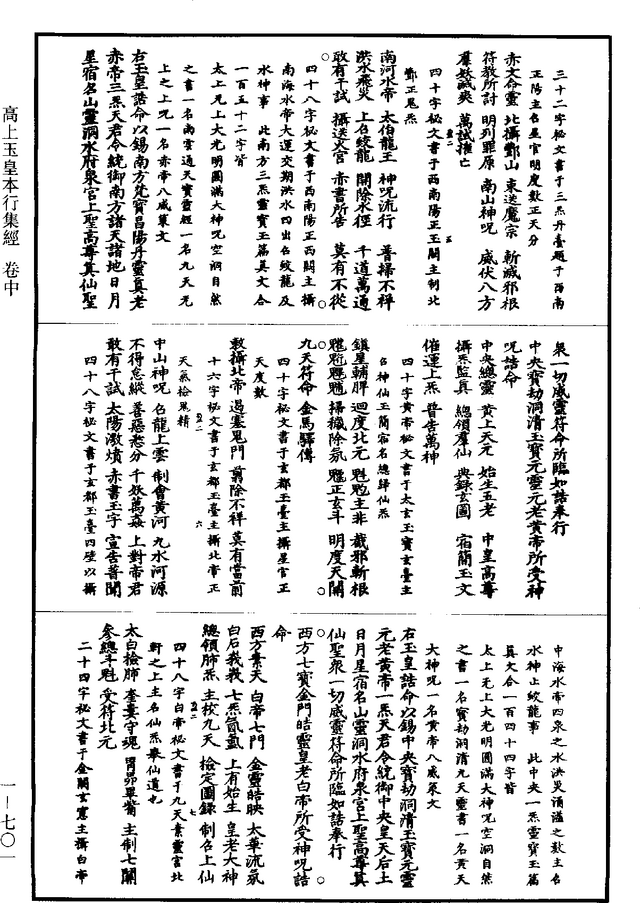 三十二字秘文書于三炁丹臺題于西南
正陽主召星官明度數正天分
赤文命靈 北攝酆山 束送魔宗 斬滅邪根
符教所討 明列罪原 南山神呪 威伏八方
羣妖滅爽 萬試摧亡
四十字秘文書于西南陽正玉闕主制北
酆正鬼炁
南河水帝 太伯龍王 神呪流行 普掃不祥
洪水飛災 上召蛟龍 開除水徑 千道萬通
敢有干試 攝送火宮 赤書所告 莫有不從
四十八字秘文書于西南陽正西闕主攝
南海水帝大運交期洪水四出召蛟龍及
水神事 此南方三炁靈寶玉篇真文合
一百五十二字皆
太上无上大光明圓滿大神呪空洞自然
之書一名南雲通天寶靈經一名九天元
上之上呪一名赤帝八威策文
右玉皇誥命以錫南方梵寶昌陽丹靈真老
赤帝三炁天君令統御南方諸天諸地日月
星宿名山靈洞水府泉宮上聖高尊真仙聖
衆一切威靈符命所臨如誥奉行
中央寶劫洞清玉寶元靈元老黃帝所受神
呪誥命
中央總靈 黃上天元 始生五老 中皇高尊
攝炁監真 總領羣仙 典錄玄圖 宿簡玉文
催運上炁 普告萬神
四十字黃帝秘文書于太玄玉寶玄臺主
召神仙玉簡宿名總歸仙炁
鎮星輔脾 迴度北元 魁𩲃主非 截邪斬根
掃穢除氛 正玄斗 明度天關
九天符命 金馬驛傳
四十字秘文書于玄都玉臺主攝星官正
天度數
敕攝北帝 遏塞鬼門 剪除不祥 莫有當前
十六字秘文書于玄都玉臺主攝北帝正
天氣檢鬼精
中山神呪 召龍上雲 制會黃河 九水河源
不得怠縱 善惡悉分 千妖萬姦 上對帝君
敢有干試 太陽激熿 赤書玉字 宣告普聞
四十八字秘文書于玄都玉臺四壁以攝
中海水帝四泉之水洪災涌溢之數主召
水神止蛟龍事 此中央一炁靈寶玉篇
真文合一百四十四字皆
太上无上大光明圓滿大神呪空洞自然
之書一名寶劫洞清九天靈書一名黃天
大神呪一名黃帝八威策文
右玉皇誥命以錫中央寶劫洞清玉寶元靈
元老黃帝一炁天君令統御中央皇天后土
日月星宿名山靈洞水府泉宮上聖高尊真
仙聖衆一切威靈符命所臨如誥奉行
西方七寶金門皓靈皇老白帝所受神呪誥
命
西方素天 白帝七門 金靈皓映 太華流氛
白石峩峩 七炁氤氳 上有始生 皇老大神
總領肺炁 主校九天 檢定圖錄 制召上仙
四十八字白帝秘文書于九天素靈宮北
軒之上主名仙炁舉仙道也
太白檢肺 奎婁守魂 胃昴畢觜 主制七關
參總斗魁 受符北元
二十四字秘文書于金闕玄窻主攝白帝
高上玉皇本行集經 卷中
一-七〇一